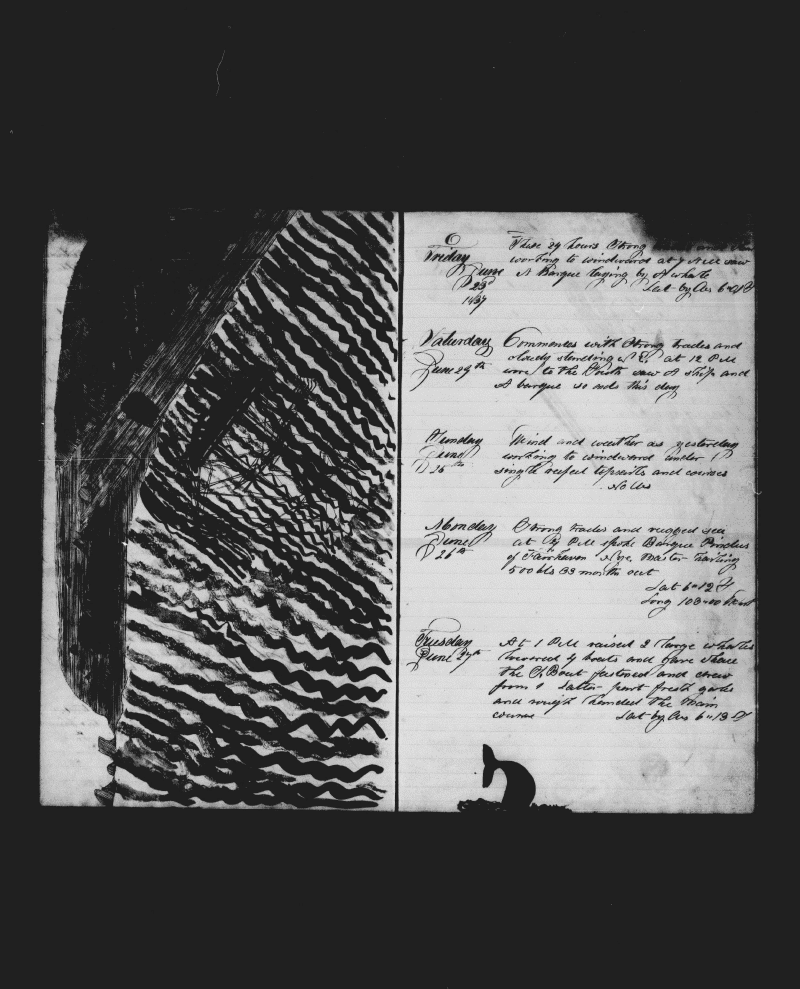 Friday These 24 hours Strong
working to windward at 7 AM saw
June A Barque laying by A whale
23d Lat by Obs
Saturday Commences with Strong trades and
cloudy standing at 12 PM
June 24th wore to the South saw A ship and
A barque so ends this day
Sunday Wind and weather as yesterday
June working to windward under
25th single reefed topsails and courses
No Obs
Monday Strong trades and rugged sea
June at PM spoke Barque Pindus
26th of Fairhaven Master
500 bls 33 months out
Lat 6-12
Long 103-00
Tuesday At 1 PM raised 2 large whales
June 27th lowered 4 boats and gave chase
the Boat fastened and drew
from latter part fresh gale
and rough the Main
course Lat by Obs 6-13